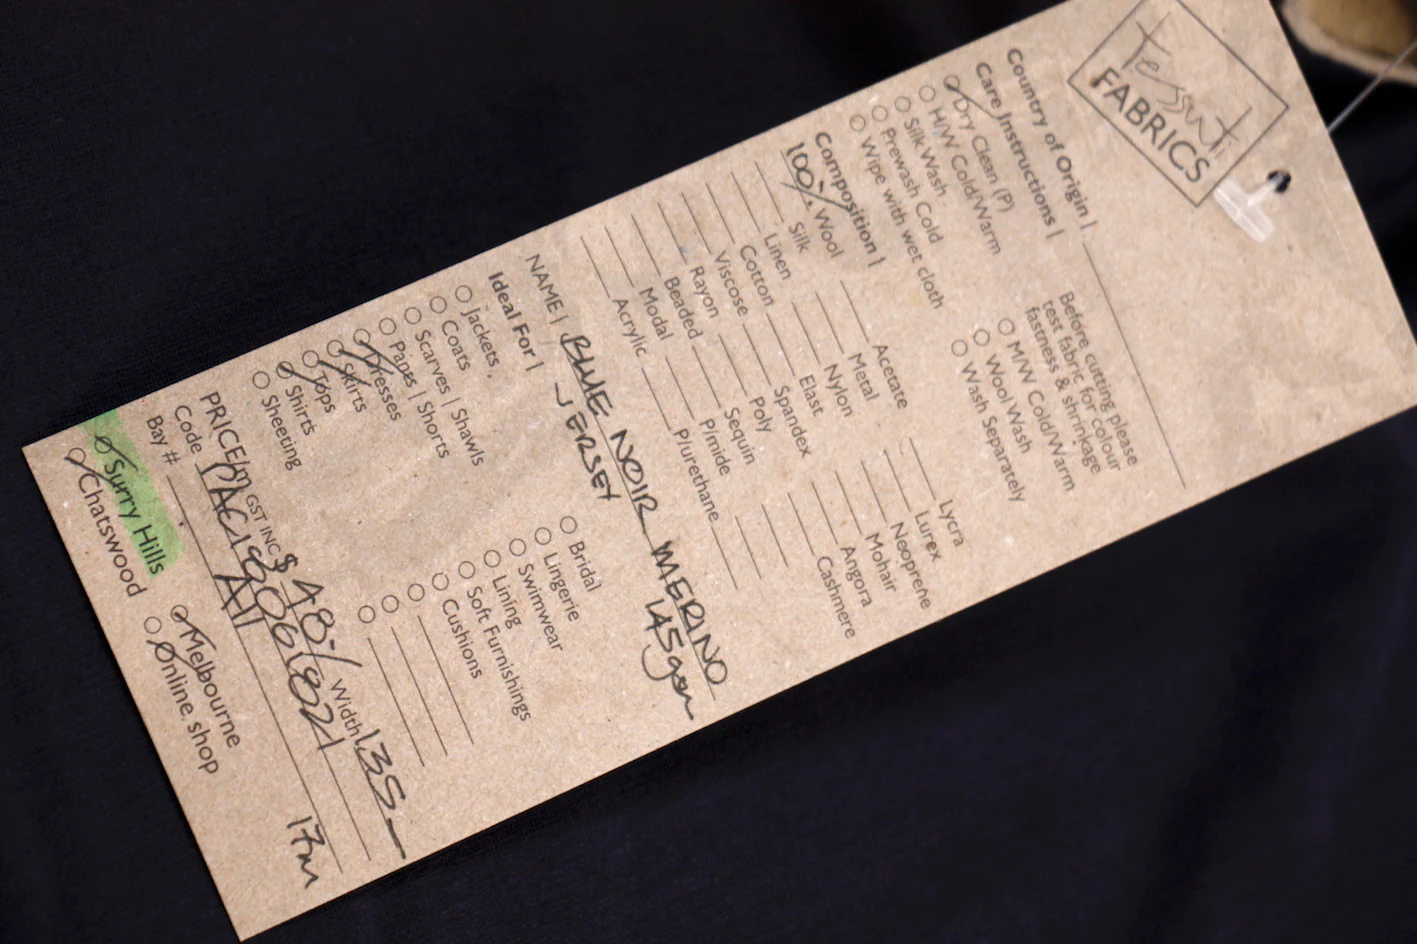 Tessuti
FABRICS
Country of Origin |
Care Instructions |
Before cutting please
test fabric for colour
fastness & shrinkage
Dry Clean (P)
H/W Cold/Warm
Silk Wash
Prewash Cold
Wipe with wet cloth
M/W Cold/Warm
Wool Wash
Wash Separately
Composition |
100% Wool
Silk
Linen
Cotton
Viscose
Rayon
Beaded
Modal
Acrylic
Acetate
Metal
Nylon
Elast
Spandex
Poly
Sequin
P/mide
P/urethane
Lycra
Lurex
Neoprene
Mohair
Angora
Cashmere
NAME | BLUE NOIR MERINO
JERSEY 145gsm
Ideal For |
Jackets
Coats
Scarves | Shawls
Pants | Shorts
Dresses
Skirts
Tops
Shirts
Sheeting
Bridal
Lingerie
Swimwear
Lining
Soft Furnishings
Cushions
PRICE/m GST INC $ 48.-/ Width 135
Code
Bay # A11 17m
Surry Hills
Chatswood
Melbourne
Online shop